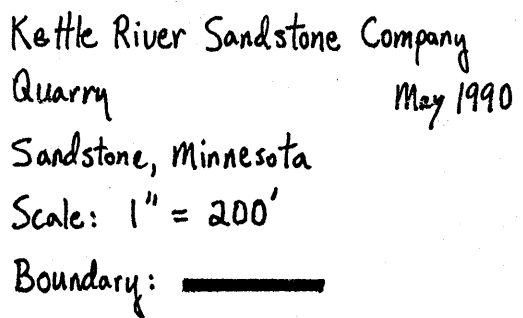 Kettle River Sandstone Company
Quarry May 1990
Sandstone, Minnesota
Scale: 1" = 200'
Boundary: